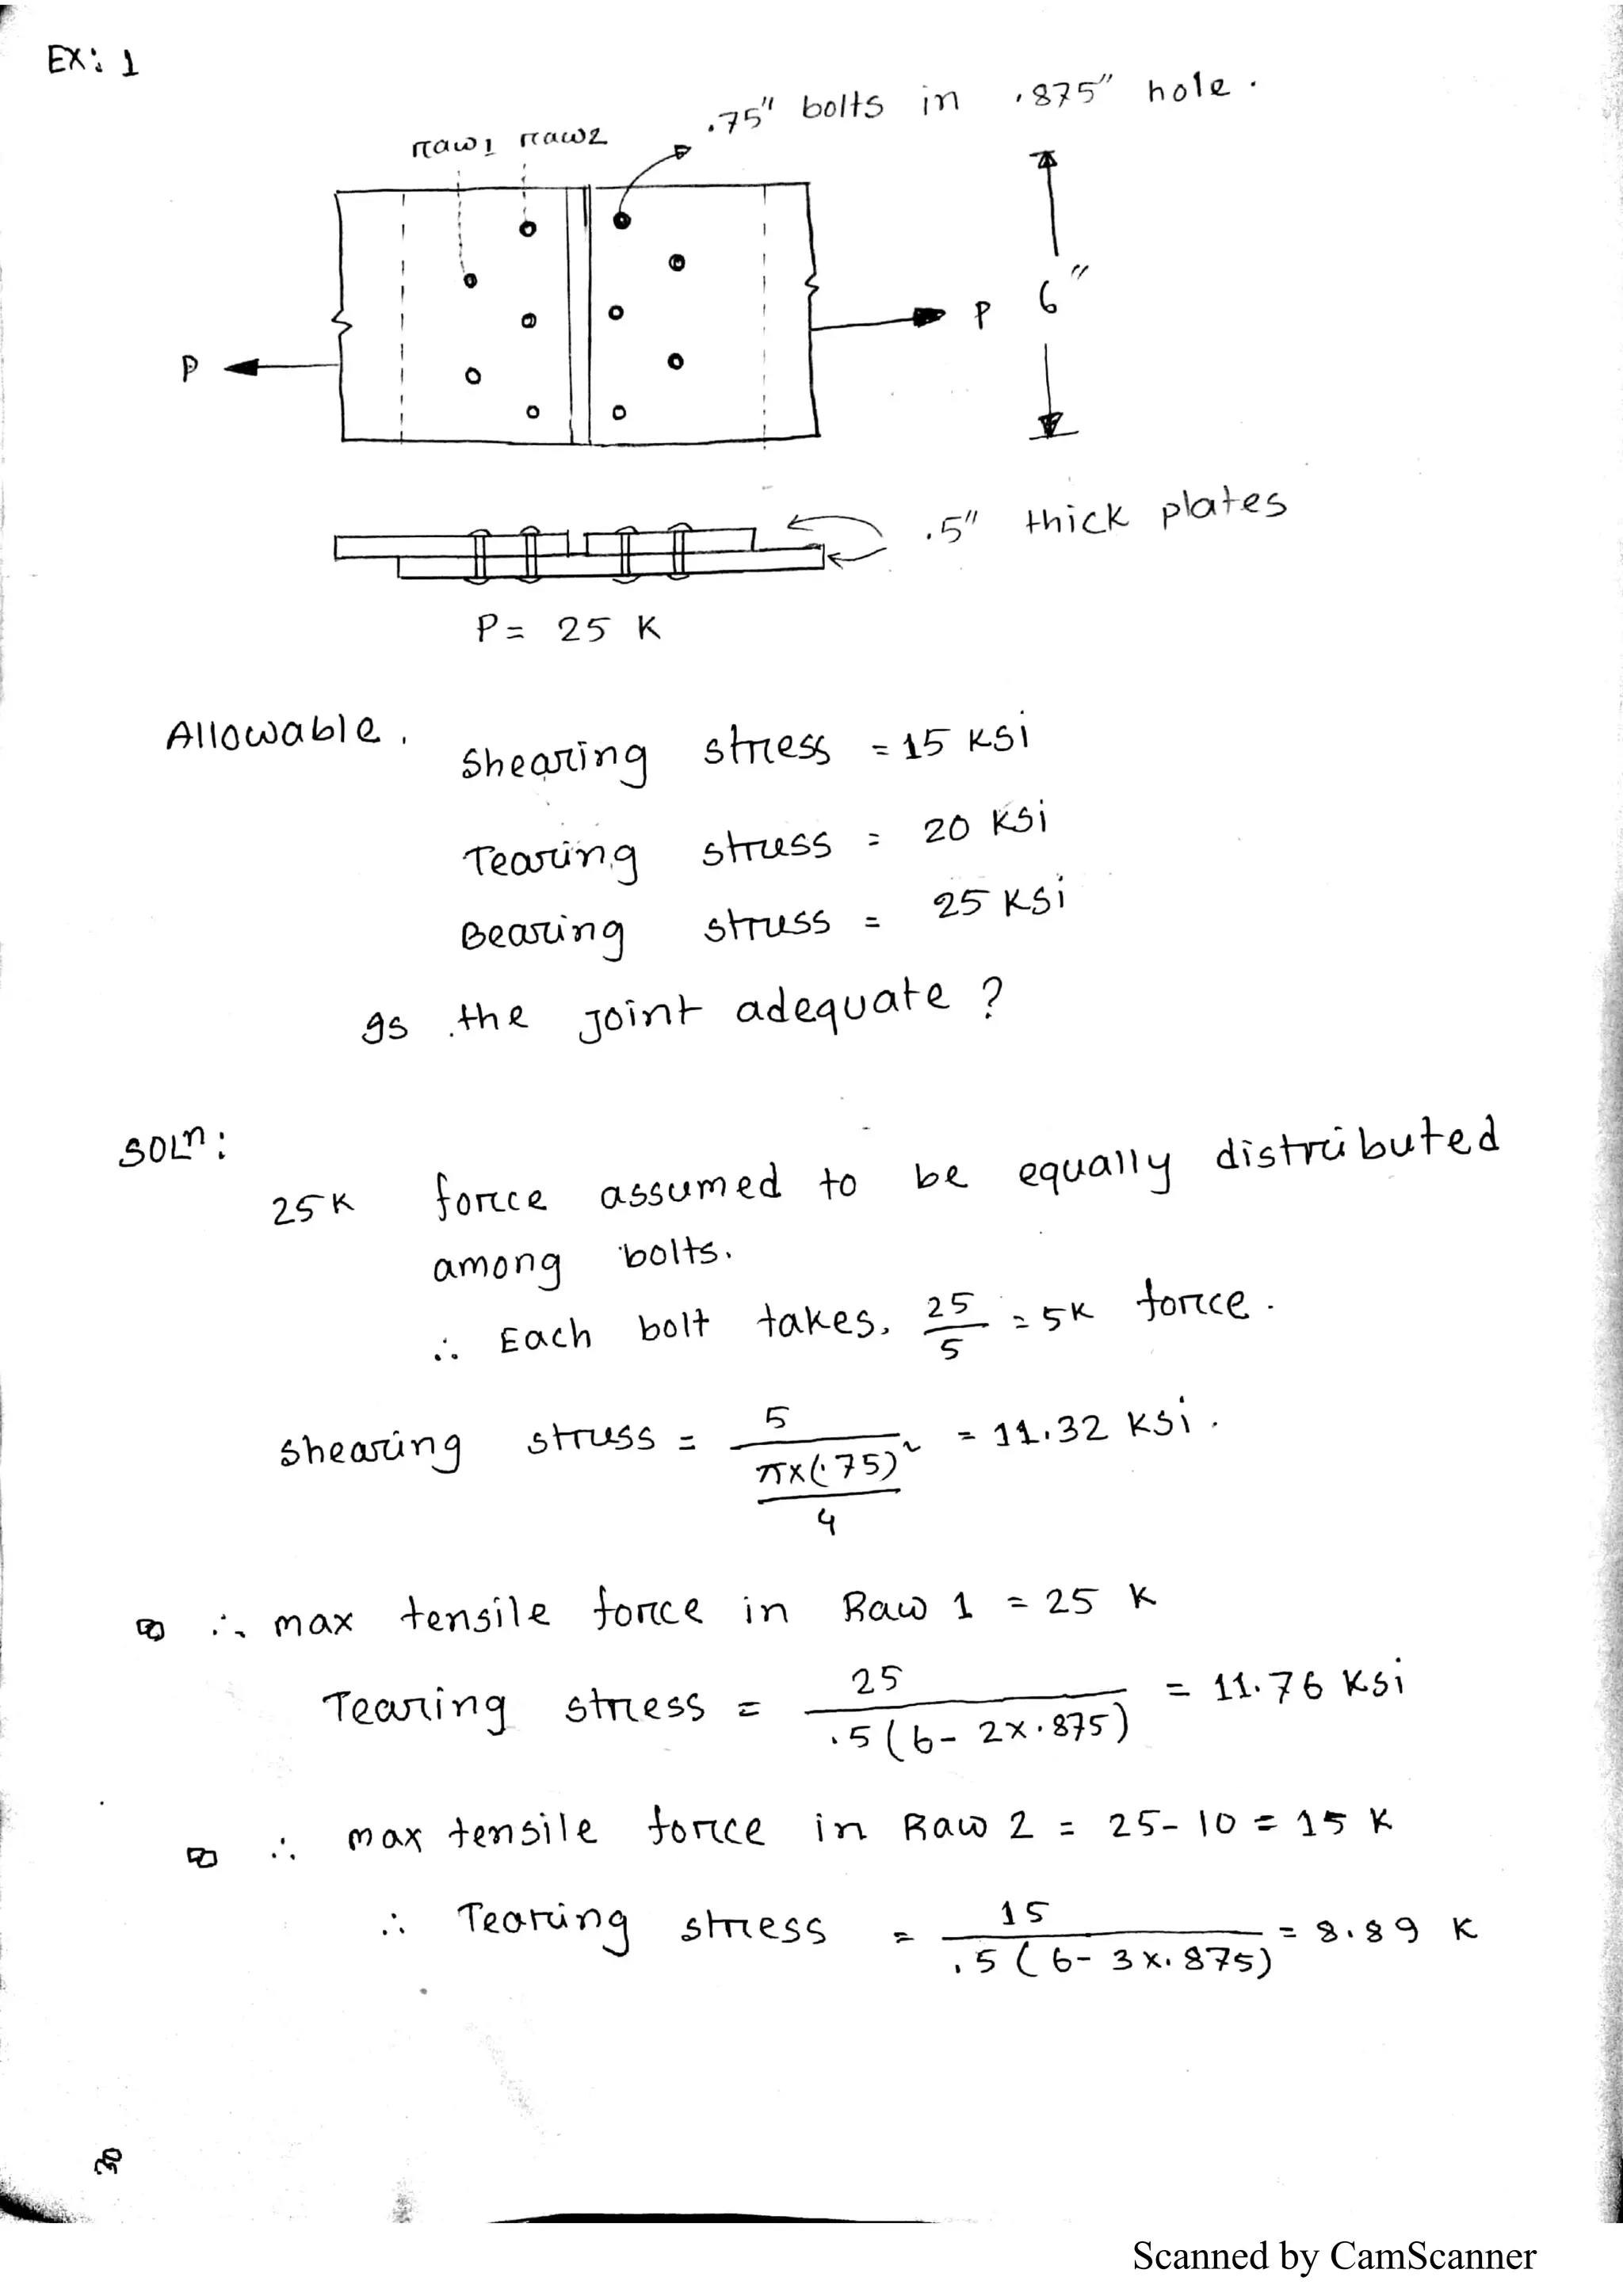 EX: 1
.75" bolts in .875" hole.
raw1 raw2
P
P
6"
.5" thick plates
P = 25 K
Allowable.
Shearing stress = 15 KSi
Tearing stress = 20 KSi
Bearing stress = 25 KSi
Is the joint adequate ?
SOLⁿ:
25K force assumed to be equally distributed
among bolts.
∴ Each bolt takes, 25/5 = 5K force.
Shearing stress = 5 / (π×(.75)²/4) = 11.32 KSi.
∴ max tensile force in Raw 1 = 25 K
Tearing stress = 25 / .5(6- 2×.875) = 11.76 KSi
∴ max tensile force in Raw 2 = 25-10 = 15 K
∴ Tearing stress = 15 / .5(6- 3×.875) = 8.89 K
30
Scanned by CamScanner